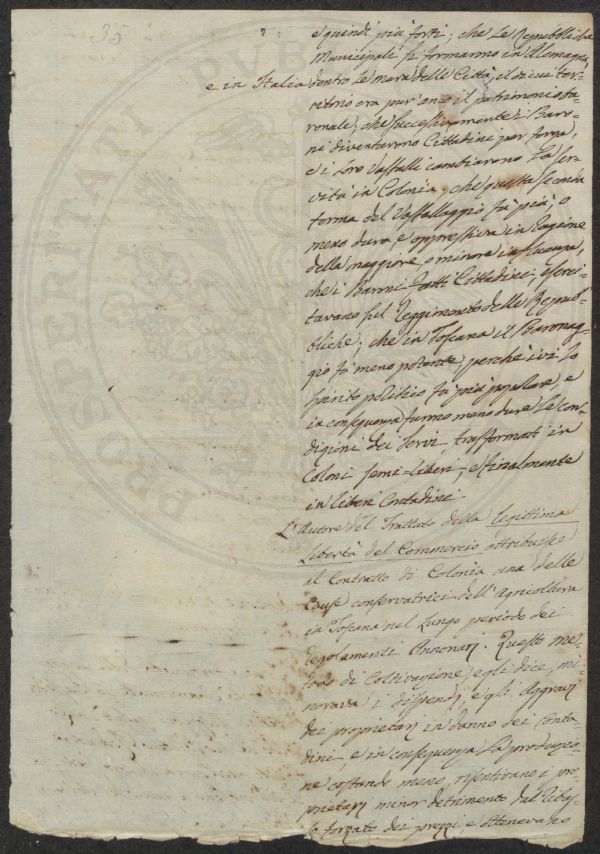 35
e quindi più forti; che le Repubbliche
Municipali si formarono in Alemagna,
e in Italia dentro le mura delle Città, il di cui ter-
ritorio era pur'anco il patrimonio ba-
ronale; che successivamente i Baro-
ni diventarono Cittadini per forza,
e i loro Vassalli cambiarono la ser-
vitù in Colonia; che questa seconda
forma del Vassallaggio fù più, o
meno dura e oppressiva in ragione
della maggiore, o minore influenza,
che i Baroni fatti Cittadini, eserci-
tavano sul Reggimento delle Repub-
bliche; che in Toscana il Baronag-
gio fù meno potente, perchè ivi lo
spirito politico fù più popolare, e
in conseguenza furono meno dure le con-
dizioni dei Servi, trasformati in
Coloni semi-liberi, e finalmente
in liberi Contadini.
L'Autore del Trattato della legittima
libertà del Commercio attribuisce
al Contratto di Colonìa una delle
Cause conservatrici dell'Agricoltura
in Toscana nel lungo periodo dei
regolamenti Annonarj. Questo me-
todo di Coltivazione, egli dice, mi-
norava i dispendj, e gli Aggravj
dei proprietarj in danno dei Conta-
dini, e in conseguenza la produzio-
ne costando meno, risentivano i pro-
prietarj minor detrimento dal ribas-
so forzato dei prezzi, e ottenevano
PVB
PROSPERITATI